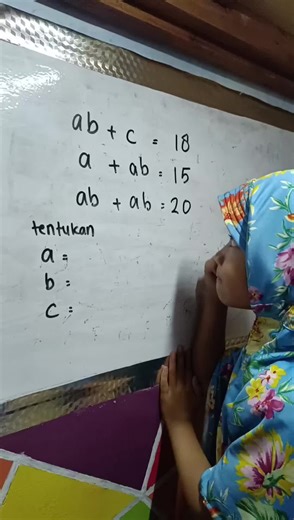 ab + c = 18
a + ab = 15
ab + ab = 20
tentukan
a =
b =
c =